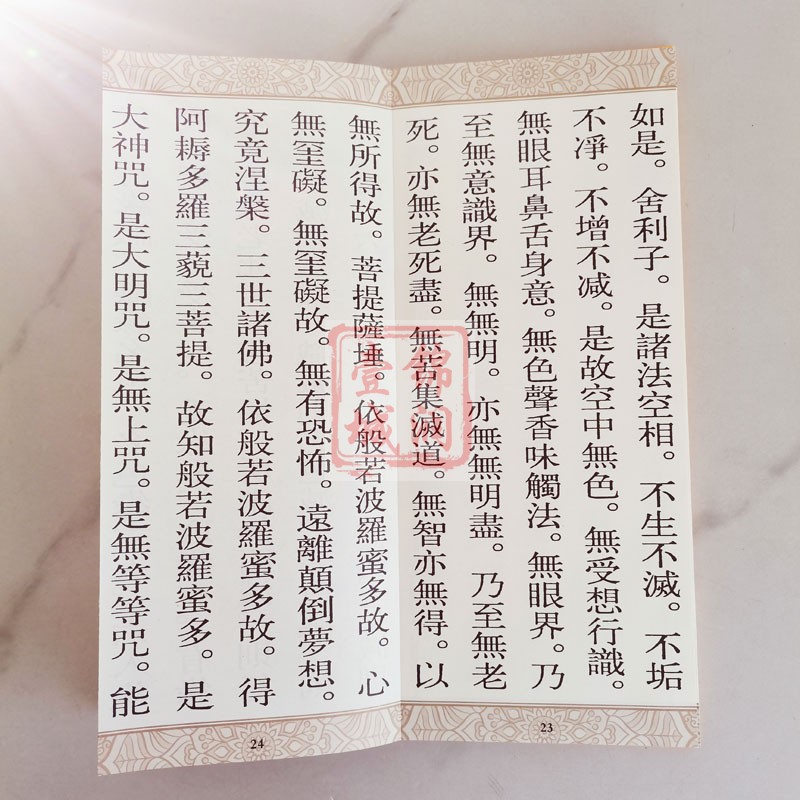 如是。舍利子。是諸法空相。不生不滅。不垢
不淨。不增不减。是故空中無色。無受想行識。
無眼耳鼻舌身意。無色聲香味觸法。無眼界。乃
至無意識界。無無明。亦無無明盡。乃至無老
死。亦無老死盡。無苦集滅道。無智亦無得。以
23
無所得故。菩提薩埵。依般若波羅蜜多故。心
無罣礙。無罣礙故。無有恐怖。遠離顛倒夢想。
究竟涅槃。三世諸佛。依般若波羅蜜多故。得
阿耨多羅三藐三菩提。故知般若波羅蜜多。是
大神咒。是大明咒。是無上咒。是無等等咒。能
24
壹城